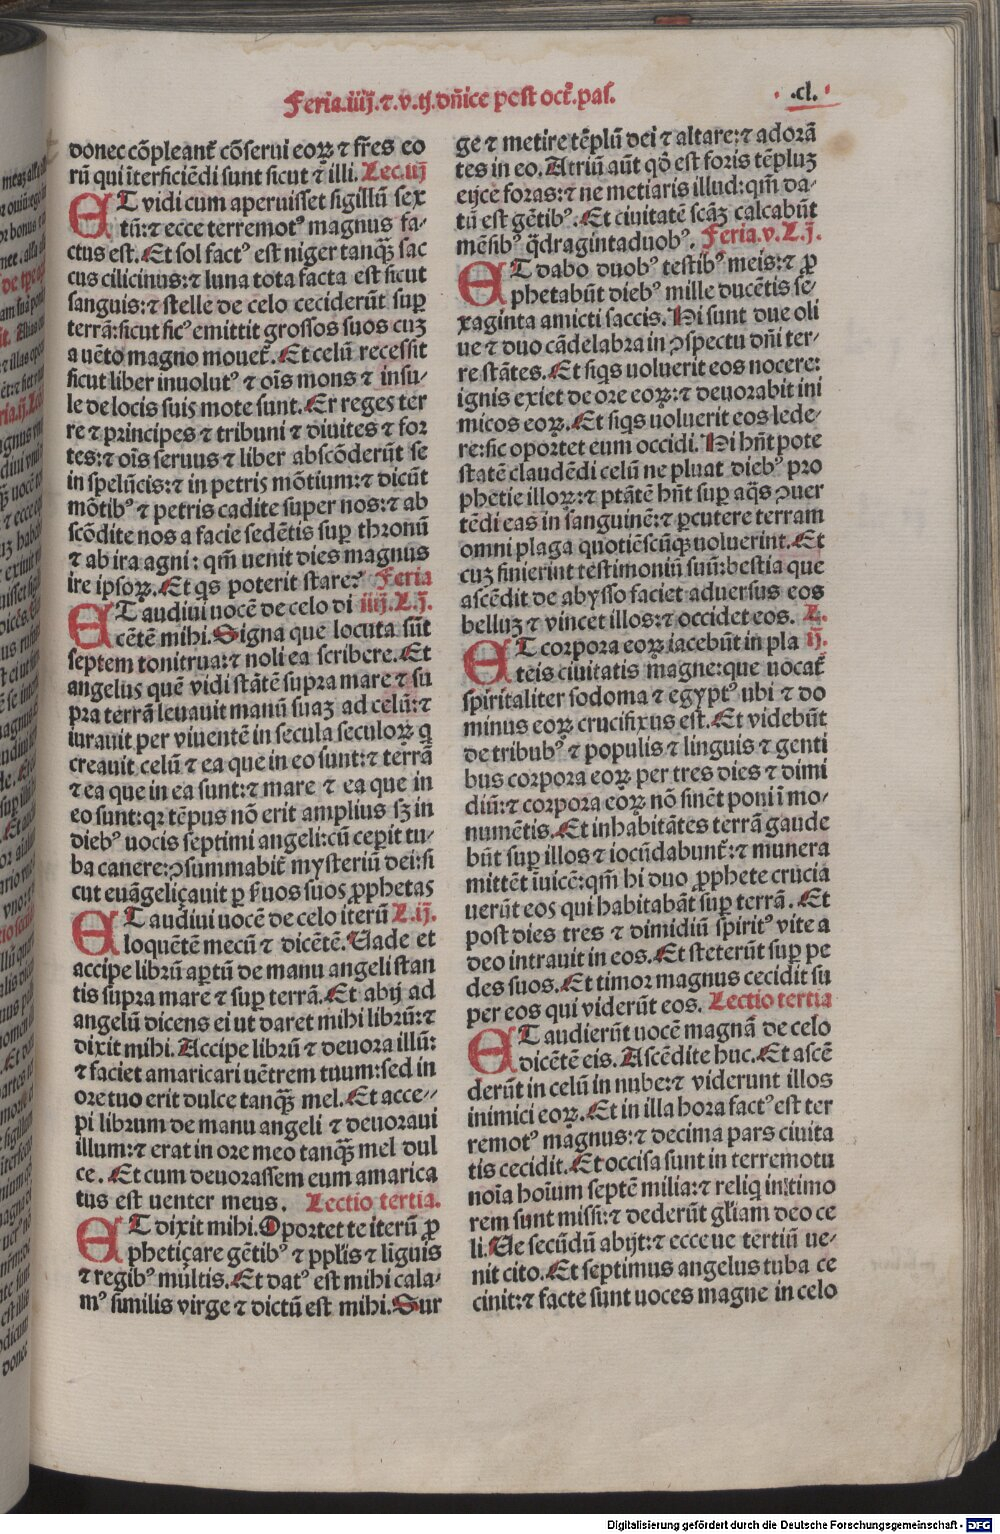 Feria.iiij.⁊.v.ij.dn̄ice post oct̄.pas.
.cl.
donec cōpleant᷑ cōserui eoꝝ ⁊ fr̄es eo
rū qui īterficiēdi sunt sicut ⁊ illi. Lec.iij
ET vidi cum aperuisset sigillū sex
tū:⁊ ecce terremotꝰ magnus fa-
ctus est. Et sol factꝰ est niger tanqꝫ sac
cus cilicinus:⁊ luna tota facta est sicut
sanguis:⁊ stelle de celo ceciderūt suꝑ
terrā:sicut ficꝰ emittit grossos suos cuꝫ
a uēto magno mouet᷑. Et celū recessit
sicut liber inuolutꝰ ⁊ oīs mons ⁊ insu-
le de locis suis mote sunt. Et reges ter
re ⁊ principes ⁊ tribuni ⁊ diuites ⁊ for
tes:⁊ oīs seruus ⁊ liber abscōderūt se
in spelūcis:⁊ in petris mōtium:⁊ dicūt
mōtibꝰ ⁊ petris cadite super nos:⁊ ab
scōdite nos a facie sedētis suꝑ thronū
⁊ ab ira agni: qm̄ uenit dies magnus
ire ipsoꝝ. Et qs poterit stare? Feria
ET audiui uocē de celo di iiij.L.j.
cētē mihi. Signa que locuta sūt
septem tonitrua:⁊ noli ea scribere. Et
angelus quē vidi stātē supra mare ⁊ su
pra terrā leuauit manū suaꝫ ad celū:⁊
iurauit per viuentē in secula seculoꝝ q
creauit celū ⁊ ea que in eo sunt:⁊ terrā
⁊ ea que in ea sunt:⁊ mare ⁊ ea que in
eo sunt:qꝛ tēpus nō erit amplius sꝫ in
diebꝰ uocis septimi angeli:cū ceperit tu-
ba canere:ↄsummabit᷑ mysteriū dei:si
cut euāgeliçauit ꝑ ſ̄uos suos ꝓphetas
ET audiui uocē de celo iterū L.ij.
loquētē mecū ⁊ dicētē. Uade et
accipe librū aꝑtū de manu angeli stan
tis supra mare ⁊ suꝑ terrā. Et abij ad
angelū dicens ei ut daret mihi librū:⁊
dixit mihi. Accipe librū ⁊ deuora illū:
⁊ faciet amaricari uētrem tuum:sed in
ore tuo erit dulce tanqꝫ mel. Et acce-
pi librum de manu angeli ⁊ deuoraui
illum:⁊ erat in ore meo tanqꝫ mel dul
ce. Et cum deuorassem eum amarica
tus est uenter meus. Lectio tertia.
ET dixit mihi. Oportet te iterū ꝓ
pheticare gētibꝰ ⁊ ppl̄is ⁊ līguis
⁊ regibꝰ multis. Et datꝰ est mihi cala-
mꝰ similis virge ⁊ dictū est mihi. Sur
ge ⁊ metire tēplū dei ⁊ altare:⁊ adorā
tes in eo. Atriū aūt qd̓ est foris tēpluꝫ
eijce foras:⁊ ne metiaris illud:qm̄ da-
tū est gētibꝰ. Et ciuitatē scāꝫ calcabūt
mēsibꝰ q̄dragintaduobꝰ. Feria.v.L.j.
ET dabo duobꝰ testibꝰ meis:⁊ ꝓ
phetabūt diebꝰ mille ducētis se-
xaginta amicti saccis. Hi sunt due oli
ue ⁊ duo cādelabra in ↄspectu dn̄i ter-
re stātes. Et siqs uoluerit eos nocere:
ignis exiet de ore eoꝝ:⁊ deuorabit ini
micos eoꝝ. Et siqs uoluerit eos lede-
re:sic oportet eum occidi. Hi hn̄t pote
statē claudēdi celū ne pluat diebꝰ pro
phetie illoꝝ:⁊ ptātē hn̄t suꝑ aq̄s ↄuer
tēdi eas in sanguinē:⁊ ꝑcutere terram
omni plaga quotiēscūqꝫ uoluerint. Et
cuꝫ finierint testimoniū suū:bestia que
ascēdit de abysso faciet aduersus eos
belluꝫ ⁊ vincet illos:⁊ occidet eos. L.
ET corpora eoꝝ iacebūt in pla ij.
teis ciuitatis magne:que uocat᷑
spiritaliter sodoma ⁊ egyptꝰ ubi ⁊ do
minus eoꝝ crucifixus est. Et videbūt
de tribubꝰ ⁊ populis ⁊ linguis ⁊ genti
bus corpora eoꝝ per tres dies ⁊ dimi
diū:⁊ corpora eoꝝ nō sinēt poni ī mo-
numētis. Et inhabitātes terrā gaude
būt suꝑ illos ⁊ iocūdabunt᷑:⁊ munera
mittēt īuicē:qm̄ hi duo ꝓphete crucia
uerūt eos qui habitabāt suꝑ terrā. Et
post dies tres ⁊ dimidiū spiritꝰ vite a
deo intrauit in eos. Et steterūt suꝑ pe
des suos. Et timor magnus cecidit su
per eos qui viderūt eos. Lectio tertia
ET audierūt uocē magnā de celo
dicētē eis. Ascēdite huc. Et ascē
derūt in celū in nube:⁊ viderunt illos
inimici eoꝝ. Et in illa hora factꝰ est ter
remotꝰ magnus:⁊ decima pars ciuita
tis cecidit. Et occisa sunt in terremotu
noīa hoīum septē milia:⁊ reliq in timo
rem sunt missi:⁊ dederūt gl̄iam deo ce
li. Ue secūdū abijt:⁊ ecce ue tertiū ue-
nit cito. Et septimus angelus tuba ce
cinit:⁊ facte sunt uoces magne in celo
Digitalisierung gefördert durch die Deutsche Forschungsgemeinschaft - DFG